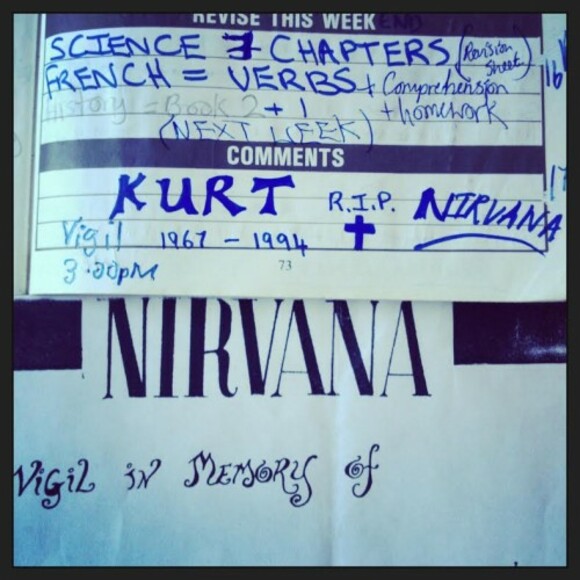 REVISE THIS WEEK
SCIENCE 7 CHAPTERS (Revision Sheet)
FRENCH = VERBS + Comprehension
+ homework
History = Book 2 + 1
(NEXT WEEK)
COMMENTS
KURT R.I.P. NIRVANA
Vigil 1967 - 1994
3.00pm
73
NIRVANA
Vigil in Memory of